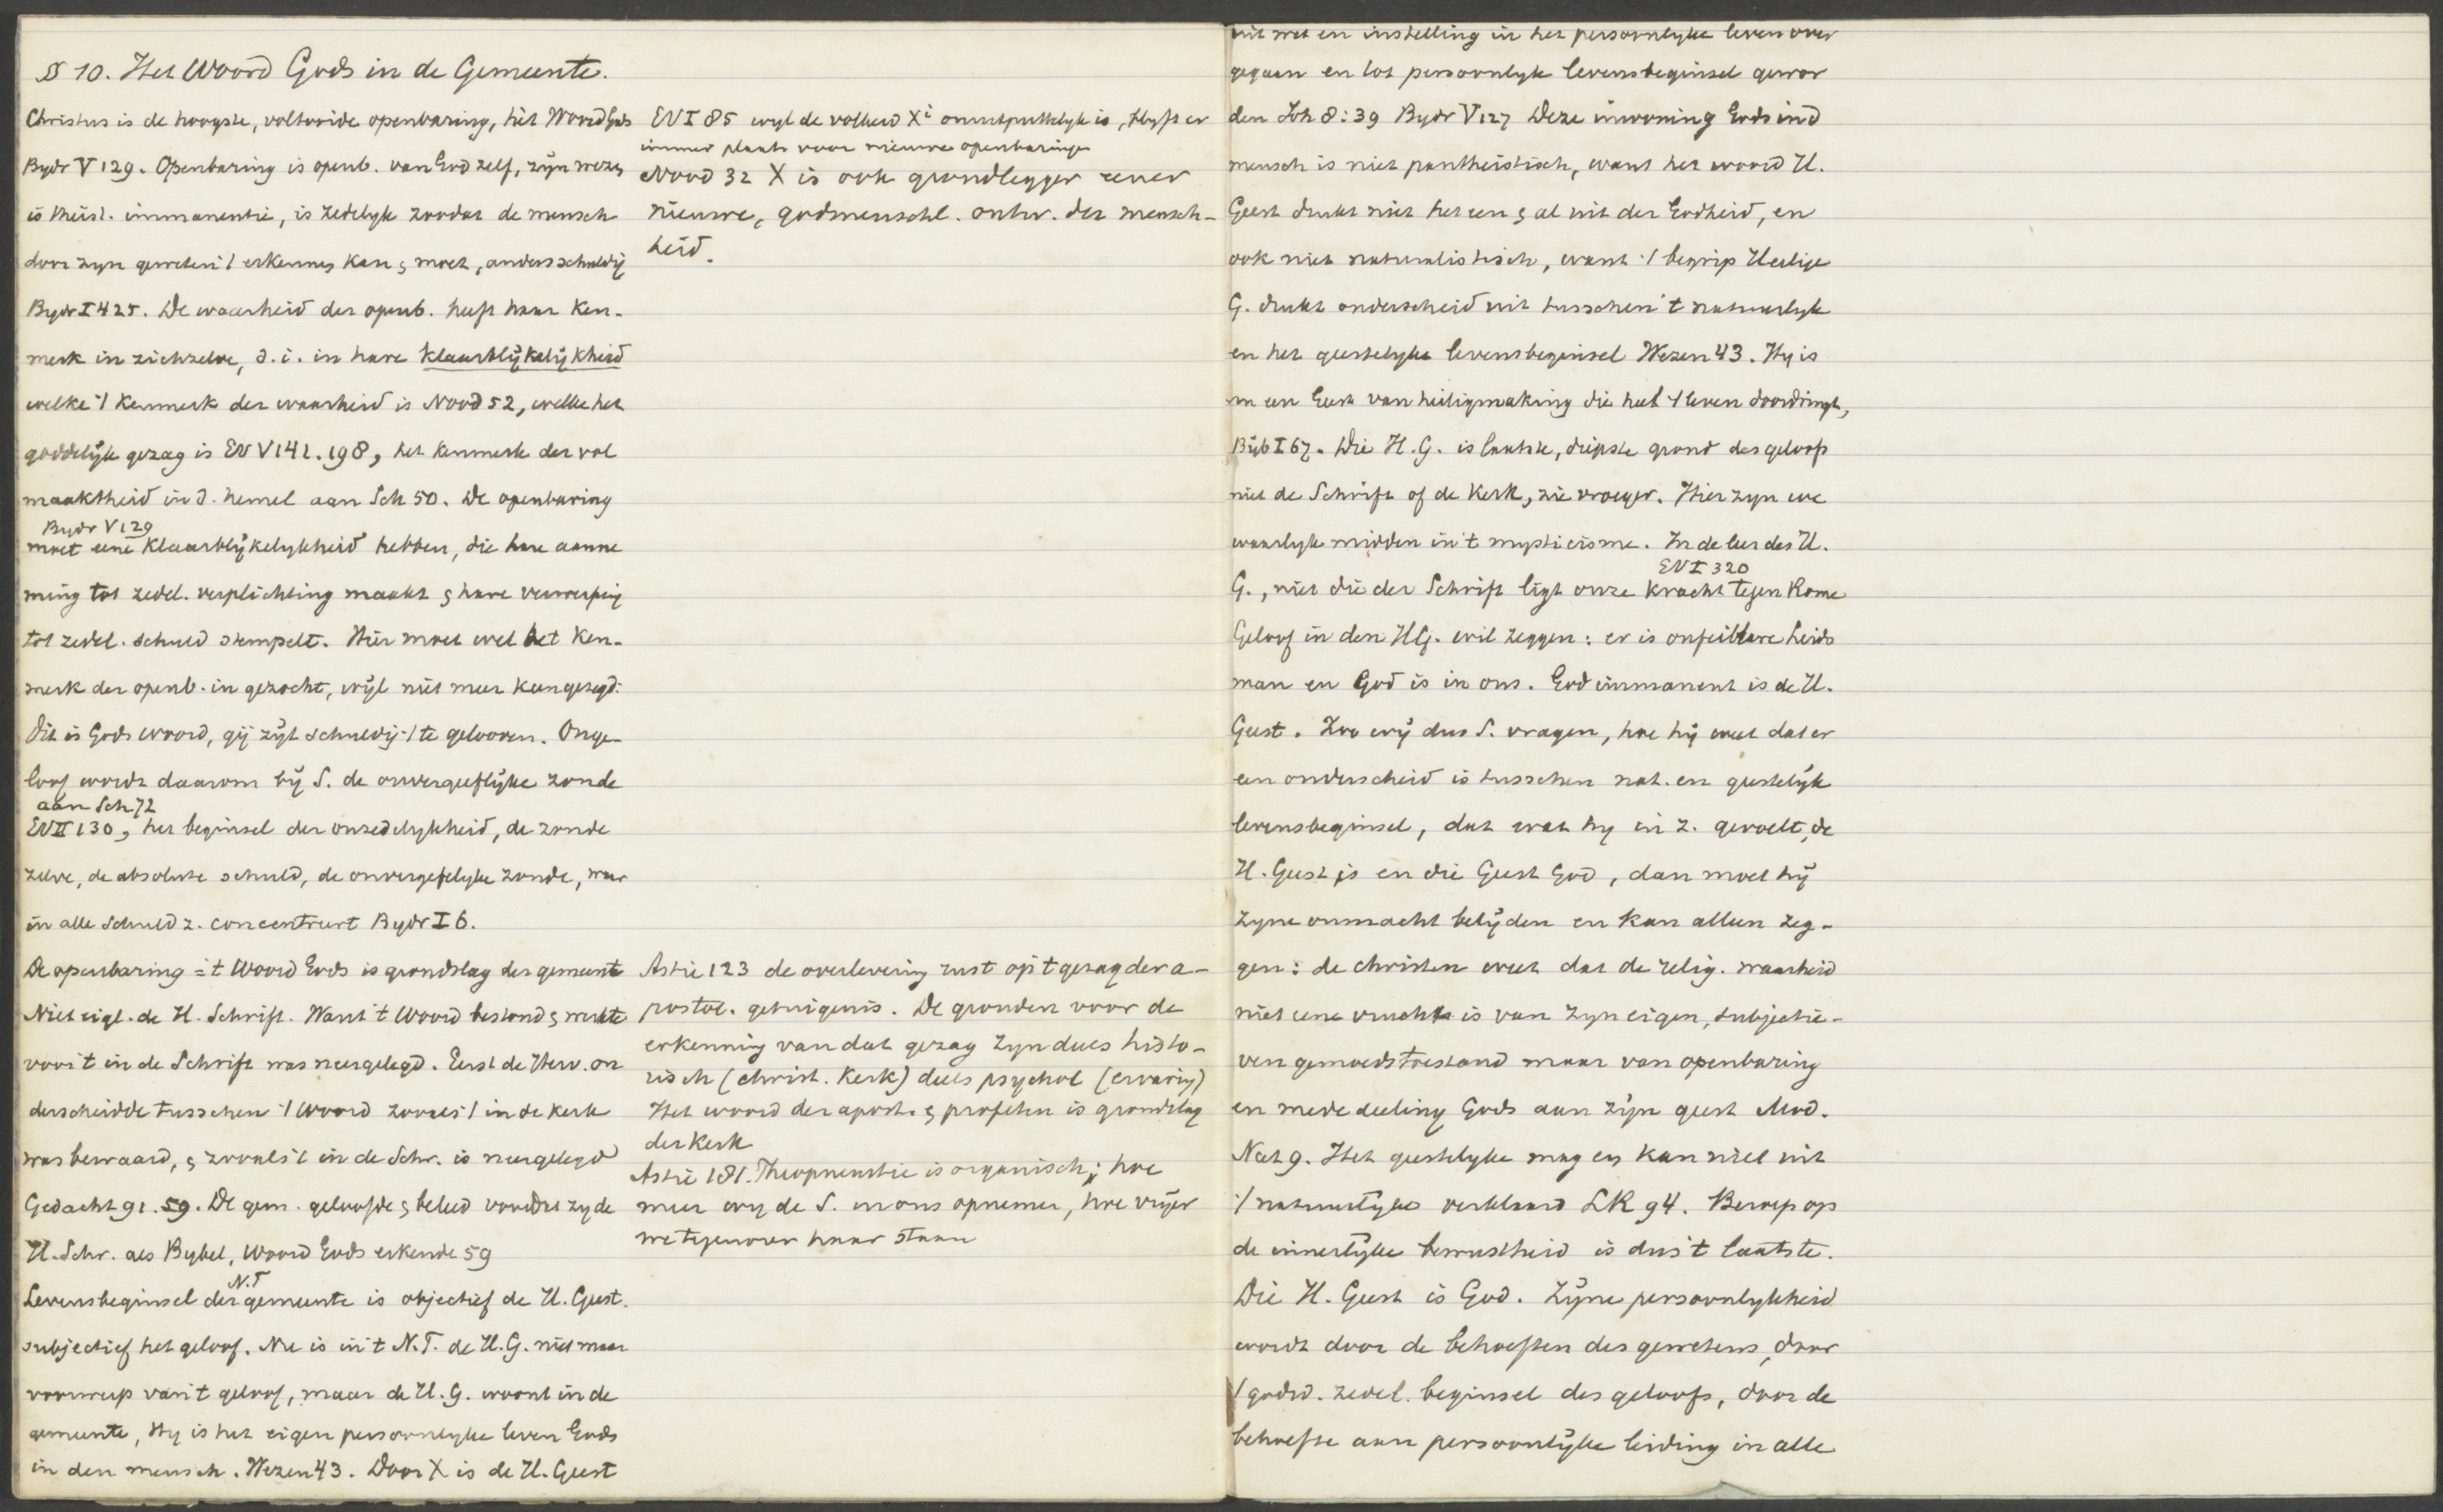 § 10. Het Woord Gods in de Gemeente.
Christus is de hoogste, voltooide openbaring, hèt Woord Gods
Bydr V 129. Openbaring is openb. van God zelf, zijn wezen
is theist. immanentie, is zedelyk zoodat de mensch
door zyn geweten 't erkennen kan & moet, anders schuldig
Bydr I 425. De waarheid der openb. heeft haar ken-
merk in zichzelve, d.i. in hare klaarblijkelijkheid
welke 't kenmerk der waarheid is Nood 52, welke het
goddelijk gezag is EV V 141. 198, het kenmerk der vol
maaktheid in d. hemel aan Sch 50. De openbaring
Bydr V 129
moet eene klaarblijkelykheid hebben, die hare aanne
ming tot zedel. verplichting maakt & hare verwerping
tot zedel. schuld stempelt. Hier moet wel het ken-
merk der openb. in gezocht, wijl niet meer kan gezegd:
dit is Gods woord, gij zijt schuldig 't te gelooven. Onge-
loof wordt daarom bij S. de onvergeeflijke zonde
aan Sch 72
EV II 130, het beginsel der onzedelykheid, de zonde
zelve, de absolute schuld, de onvergefelyke zonde, waar
in alle schuld z. concentreert Bydr I 6.
De openbaring = 't Woord Gods is grondslag der gemeente
Niet eigl. de H. Schrift. Want 't Woord bestond & werkte
voor 't in de Schrift was neergelegd. Eerst de Herv. on
derscheidde tusschen 't Woord zooals 't in de kerk
was bewaard, & zooals 't in de Schr. is neergelegd
Gedacht 91. 59. De gem. geloofde & beleed voordat zy de
H. Schr. als Bybel, Woord Gods erkende 59
N.T
Levensbeginsel der gemeente is objectief de H. Geest.
subjectief het geloof. Nu is in 't N.T. de H.G. niet maar
voorwerp van 't geloof, maar de H.G. woont in de
gemeente, Hy is het eigen persoonlyke leven Gods
in den mensch. Wezen 43. Door X is de H. Geest
EV I 85 wyl de volheid Xi onuitputtelyk is, blyft er
immer plaats voor nieuwe openbaringen
Nood 32 X is ook grondlegger eener
nieuwe, godmenschl. ontw. der mensch-
heid.
Astié 123 de overlevering rust op 't gezag der a-
postol. getuigenis. De gronden voor de
erkenning van dat gezag zyn deels histo-
risch (christ. kerk) deels psychol (ervaring)
Het woord der apost. & profeten is grondslag
der Kerk
Astié 181. Theopneustie is organisch; hoe
meer wy de S. in ons opnemen, hoe vrijer
we tegenover haar staan
uit wet en instelling in het persoonlyke leven over
gegaan en tot persoonlyk levensbeginsel gewor
den Joh 8:39 Bydr V 127 Deze inwoning Gods in d
mensch is niet pantheistisch, want het woord H.
Geest drukt niet het een & al uit der Godheid, en
ook niet naturalistisch, want 't begrip Heilige
G. drukt onderscheid uit tusschen 't natuurlyk
en het geestelyke levensbeginsel Wezen 43. Hy is
nu een Geest van heiligmaking die heel 't leven doordringt,
Bijb I 67. Die H.G. is laatste, diepste grond des geloofs
niet de Schrift of de Kerk, zie vroeger. Hier zyn we
waarlyk midden in 't mysticisme. In de leer des H.
EV I 320
G., niet die der Schrift ligt onze kracht tegen Rome
Geloof in den HG. wil zeggen: er is onfeilbare leids
man en God is in ons. God immanent is de H.
Geest. Zoo wij dus S. vragen, hoe hij weet dat er
een onderscheid is tusschen nat. en geestelijk
levensbeginsel, dat wat hy in z. gevoelt, de
H. Geest is en die Geest God, dan moet hij
zyne onmacht belijden en kan alleen zeg-
gen: de christen weet dat de relig. waarheid
niet eene vrucht is van zyn eigen, subjectie-
ven gemoedstoestand maar van openbaring
en mededeeling Gods aan zijn geest Mod.
Nat 9. Het geestelyke mag en kan niet uit
't natuurlijke verklaard LR 94. Beroep op
de innerlijke bewustheid is dus 't laatste.
Die H. Geest is God. Zijne persoonlykheid
wordt door de behoeften des gewetens, door
't godsd. zedel. beginsel des geloofs, door de
behoefte aan persoonlijke leiding in alle